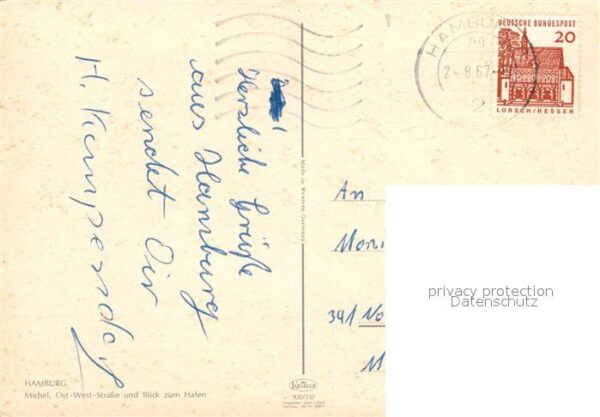 Herzliche Grüße
aus Hamburg
sendet Dir
H. Kempendorf
An
Moni
341 No
M
HAMBURG
Michel, Ost-West-Straße und Blick zum Hafen
Made in Western Germany
Krüger
920/137
HAMBURG
24.8.67
2
DEUTSCHE BUNDESPOST
20
LORSCH/HESSEN
privacy protection
Datenschutz